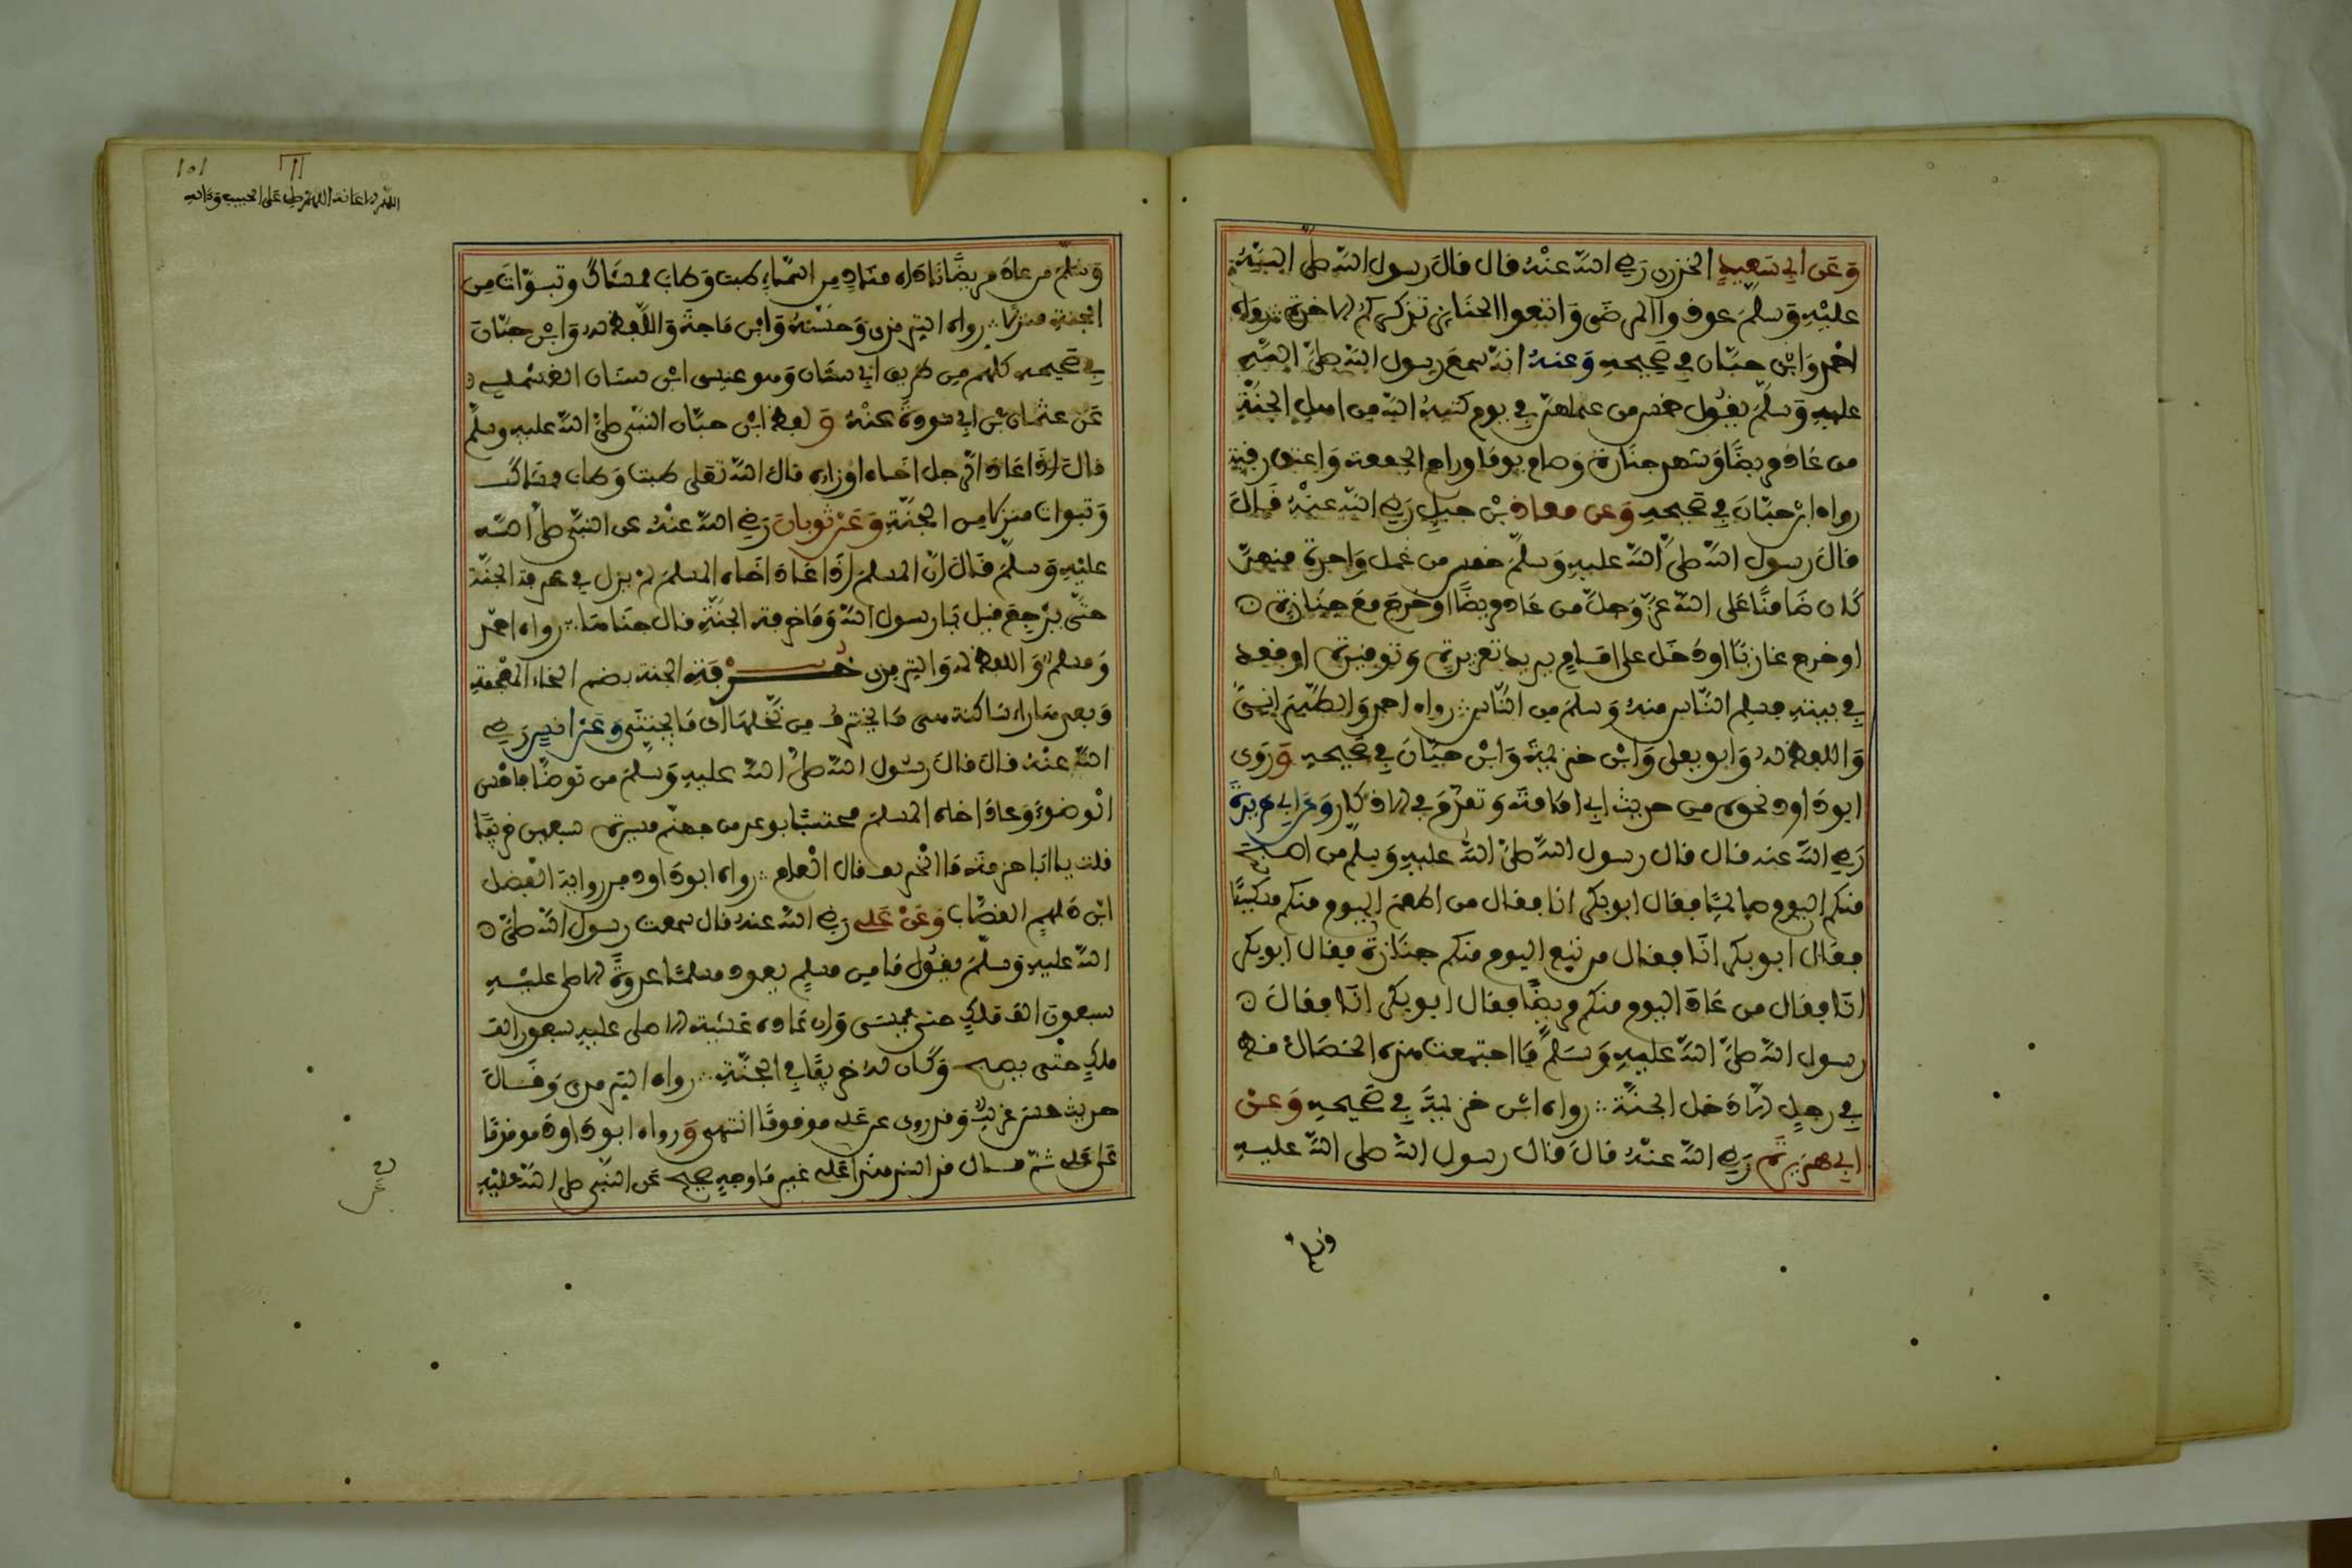 وَعَن ابي سَعِيدٍ الخدري رَضِي اللَّه عَنْهُ قال قالَ رسول اللَّه صلى اللَّهُ
عليْهِ وَسلمَ عودوا المرضَى وَاتبعوا الجنَايز تذكركم الاخرة ∴ رَوَاه
احمد وَابن حبَّان في صَحيحهِ وَعنهُ انهُ سمعَ رسول اللَّه صلىَّ اللَّه
عليهِ وَسلمَ يقُول خمس من عملهنّ في يوم كتبهُ اللَّه من اهلِ الجنَّةِ
من عَاد مريضًا وَشهد جنَازة وَصام يومًا وراح الجمعة وَاعتق رقبة
رواه ابْن حبّانَ في صَحيحهِ وَعن معاذ بْن جبلٍ رَضِي اللَّه عنْهُ قَالَ
قالَ رَسول اللَّه صلىَّ اللَّه عليهِ وَسلمَ خمس من فعل وَاحدة منهنّ
كَان ضَامنًا عَلى اللَّه عزَّ وَجلَّ من عَاد مريضًا اوخرجَ معَ جنَازة
اوخرج غازيًا اودَخَل على امَامٍ يريد تعزيره وَتوقيره اوقعد
في بيتهِ فسلِم النَّاس منهُ وَسلمَ من النَّاس ∴ رواه احمد وَالطَّبَرانيُّ
وَاللفظ له وَابو يعلى وَابْن خزيمَة وَابْن حبَّانَ في صَحيحهِ وَرَوَى
ابودَاود نحوه من حديث ابي امَامَة وَتقدَّمَ في الاذكار وَعَن ابي هريرة
رَضِي اللَّه عنه قال قال رسول اللَّه صلىَّ اللَّه عليهِ وَسلَّم من اصبح
منكم اليوم صايمًا فقال ابوبكر انا فقال من اطعمَ اليوم منكم مسكينًا
فقال ابوبكر انَا فقال من تبع اليوم منكم جنَازة فقال ابوبكر
انَا فقال من عَادَ اليوم منكم مريضًا فقال ابوبكر انَا فقالَ
رسول اللَّه صلىَّ اللَّه عليهِ وَسَلمَ مَا اجتمعت هذه الخصَال قط
في رجلٍ الادَخل الجنَّة ∴ رواه ابْن خزيمَة في صَحيحهِ وَعنْ
ابي هُرَيرَةَ رَضِي اللَّه عَنْهُ قالَ قال رسول اللَّه صلى اللَّه عليهِ
وسلم
١٥١
وَسَلمَ من عادَ مريضًا نادَاه منَادٍ من السَّمَاءِ طبت وَطاب ممشَاكَ وتبوّاتَ من
الجنةِ منزلًا ∴ رواه الترمذي وَحسَّنهُ وَابن مَاجَة وَاللَّفظ له وَابْن حبَّانَ
في صَحيحهِ كلهم من طريق ابي سنَان وَهو عيسى ابْن سنَان القسْملي
عَن عثمَان بْن ابي سودةَ عنْهُ وَلفظ ابْن حبَّان النَّبي صلىَّ اللَّه عليهِ وسلمَ
قالَ اذَا عَادَ الرَّجل اخَاه اوزاره قال اللَّه تعَلى طبت وَطاب ممشاكَ
وَتبوات منزلًا من الجنَّةِ وَعَنْ ثوبانَ رَضِي اللَّه عنْهُ عن النبي صلىَّ اللَّه
عليْهِ وَسلمَ قالَ انَّ المسلمَ اذَا عَادَ اخَاه المسلمَ لمْ يزل في خرفة الجنَّة
حتَّى يرْجعَ قيل يَا رسول اللَّه وَمَا خرفة الجنَّةِ قال جنَاهَا ∴ رواه احمد
وَمسلم وَاللفظ له وَالترمذي خرفة الجنة بضم الخاء المعْجمَة
وَبعدهَا راء سَاكنة هي مَا يخترفُ من نخلهَا اى مَا يجتنَى وَعَنْ انسٍ رَضِي
اللَّه عنْهُ قال قالَ رسُول اللَّه صلىَّ اللَّه عليهِ وَسلمَ من توضَّا فاحْسن
الْوضوءَ وَعادَ اخاه المسلمَ محتسبًا بوعد من جهنَّم مسيرة سبعين خريفًا
قلت يا ابَا حمزة مَا الْخريف قال الْعام ∴ رواه ابودَاود من رواية الفضل
ابْن دَلهم القصَّاب وَعَنْ عَلي رَضِي اللَّه عنهُ قال سمعت رسول اللَّه صلىَّ
اللَّه عليهِ وَسلمَ يقُول مَا من مسلمٍ يعود مسلمًا غدوةً الا صلى عليْهِ
سبعون الف ملكٍ حتى يمسَى وَان عَاده عَشيّة الا صلى عليهِ سبعون الف
ملكٍ حتَّى يصبح وَكَان لهُ خريفًا في الجنَّةِ ∴ رواه الترمذي وَقَالَ
حديث حسن غريب وَقد روى عن عَلي موقوفًا انتهى وَرواه ابودَاودَ موقوفًا
عَلى عَلي ثمّ قال قد اسند هذا عَلي غير مَا وجهٍ صحيح عَن النَّبي صلى اللَّه عليْهِ